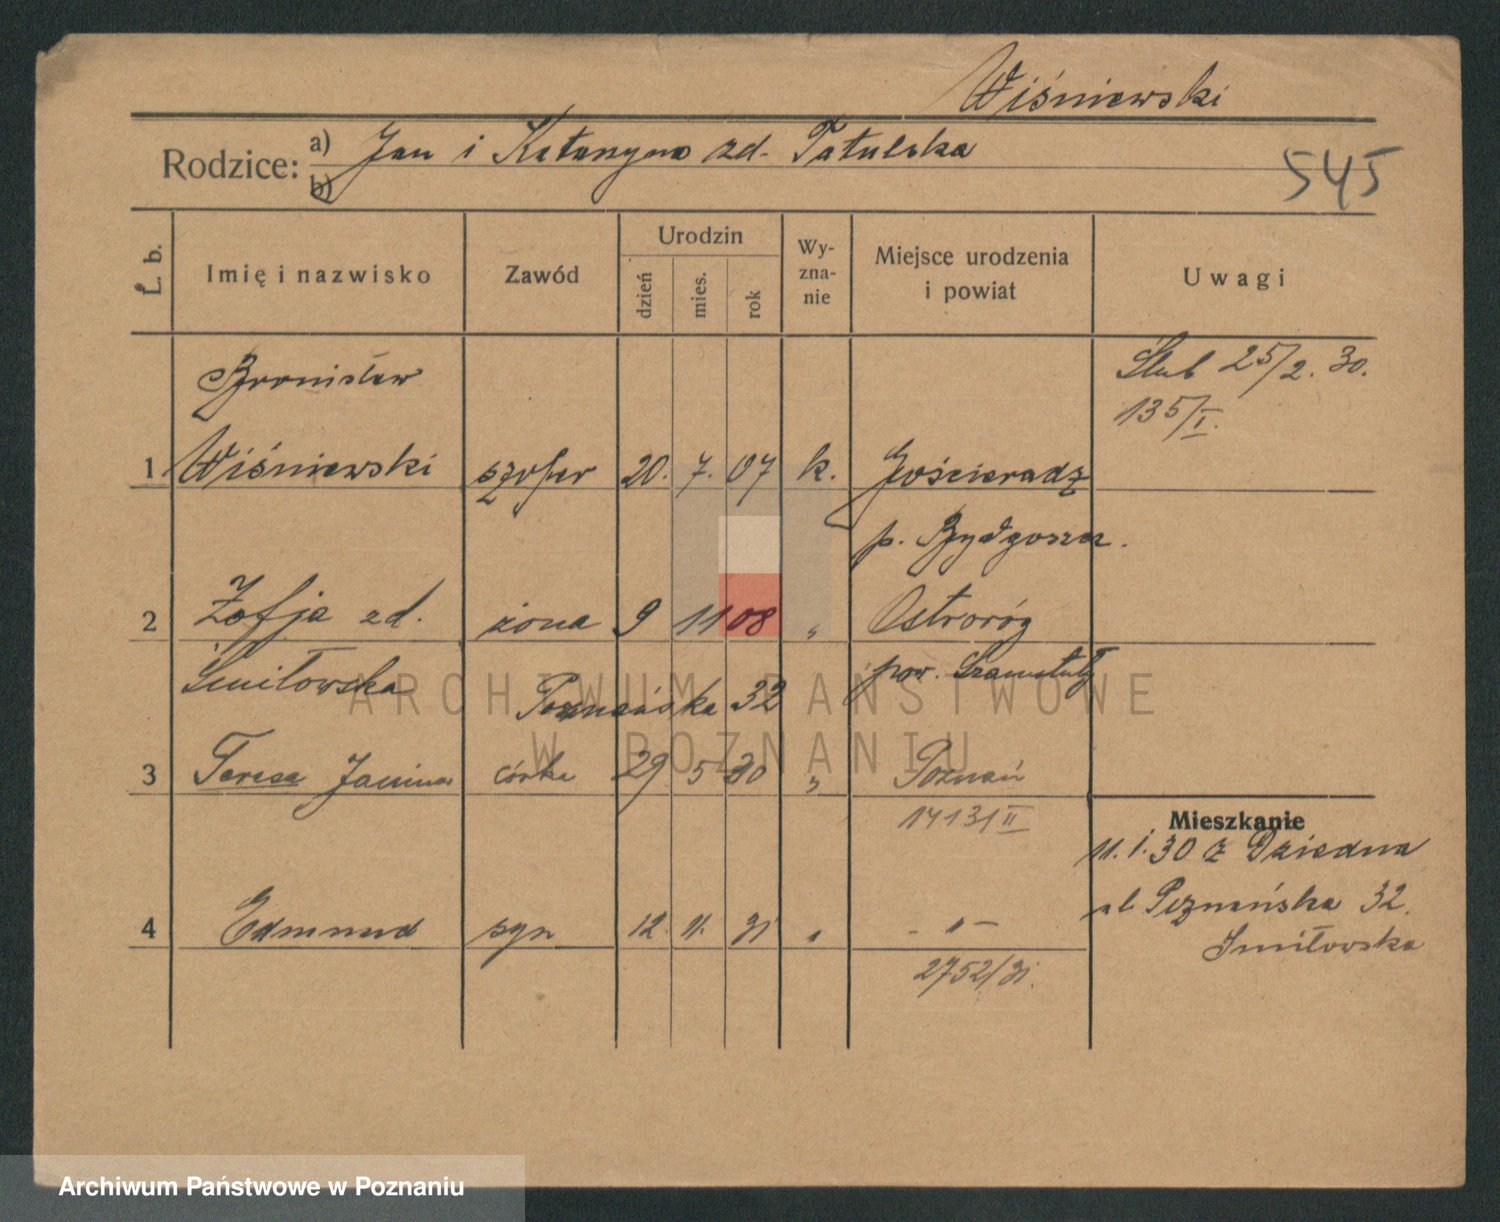 Wiśniewski
Rodzice: a) Jan i Katarzyna zd. Tatulska
b)
545
L. b.
Imię i nazwisko
Zawód
Urodzin
dzień
mies.
rok
Wy-
zna-
nie
Miejsce urodzenia
i powiat
Uwagi
Bronisław
Ślub 25/2. 30.
135/I.
1 Wiśniewski szofer 20. 7. 07 k. Gościeradz
p. Bydgoszcz.
2 Zofja zd. żona 9 11 08 „ Ostroróg
Śmiłowska pow. Szamotuły
Poznańska 32
3 Teresa Janina córka 29 5 30 „ Poznań
1413/II
Mieszkanie
11. 1. 30 z
ul Poznańska 32.
Śmiłowska
4 Edmund syn 12. 11. 31 „ - „ -
2752/31.
ARCHIWUM PAŃSTWOWE
W POZNANIU
Archiwum Państwowe w Poznaniu